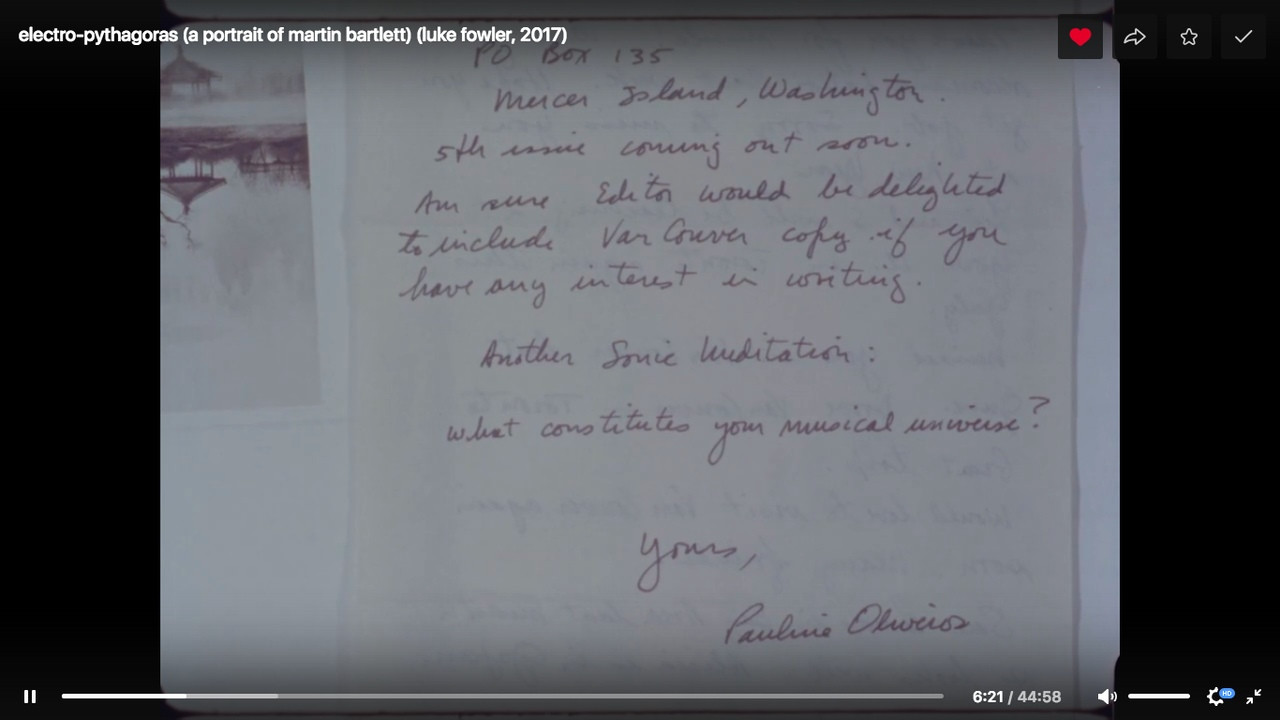 electro-pythagoras (a portrait of martin bartlett) (luke fowler, 2017)
PO Box 135
Mercer Island, Washington.
5th issue coming out soon.
Am sure Editor would be delighted
to include VanCouver copy if you
have any interest in writing.
Another Sonic Meditation:
what constitutes your musical universe?
Yours,
Pauline Oliveros
6:21 / 44:58
HD